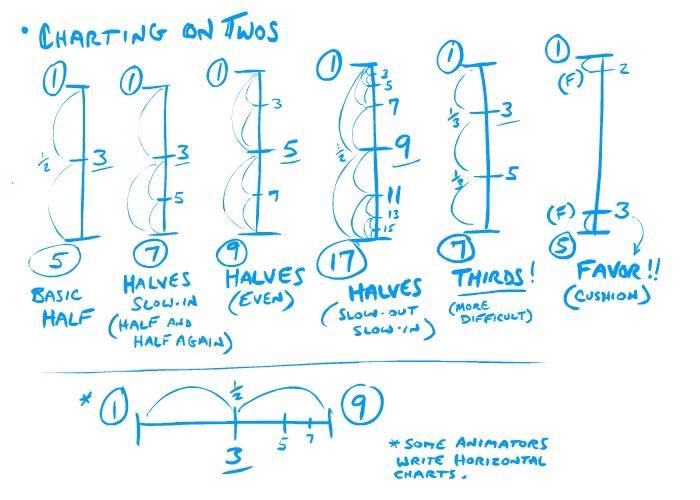 • CHARTING ON TWOS
1
1/2
3
5
BASIC
HALF
1
3
5
7
HALVES
SLOW-IN
(HALF AND
HALF AGAIN)
1
3
5
7
9
HALVES
(EVEN)
1
3
5
7
1/2
9
11
13
15
17
HALVES
(SLOW-OUT
SLOW-IN)
1
1/3
3
1/3
5
7
THIRDS!
(MORE
DIFFICULT)
1
(F) 2
(F) 3
5
FAVOR!!
(CUSHION)
* 1
1/2
9
3
5
7
* SOME ANIMATORS
WRITE HORIZONTAL
CHARTS.